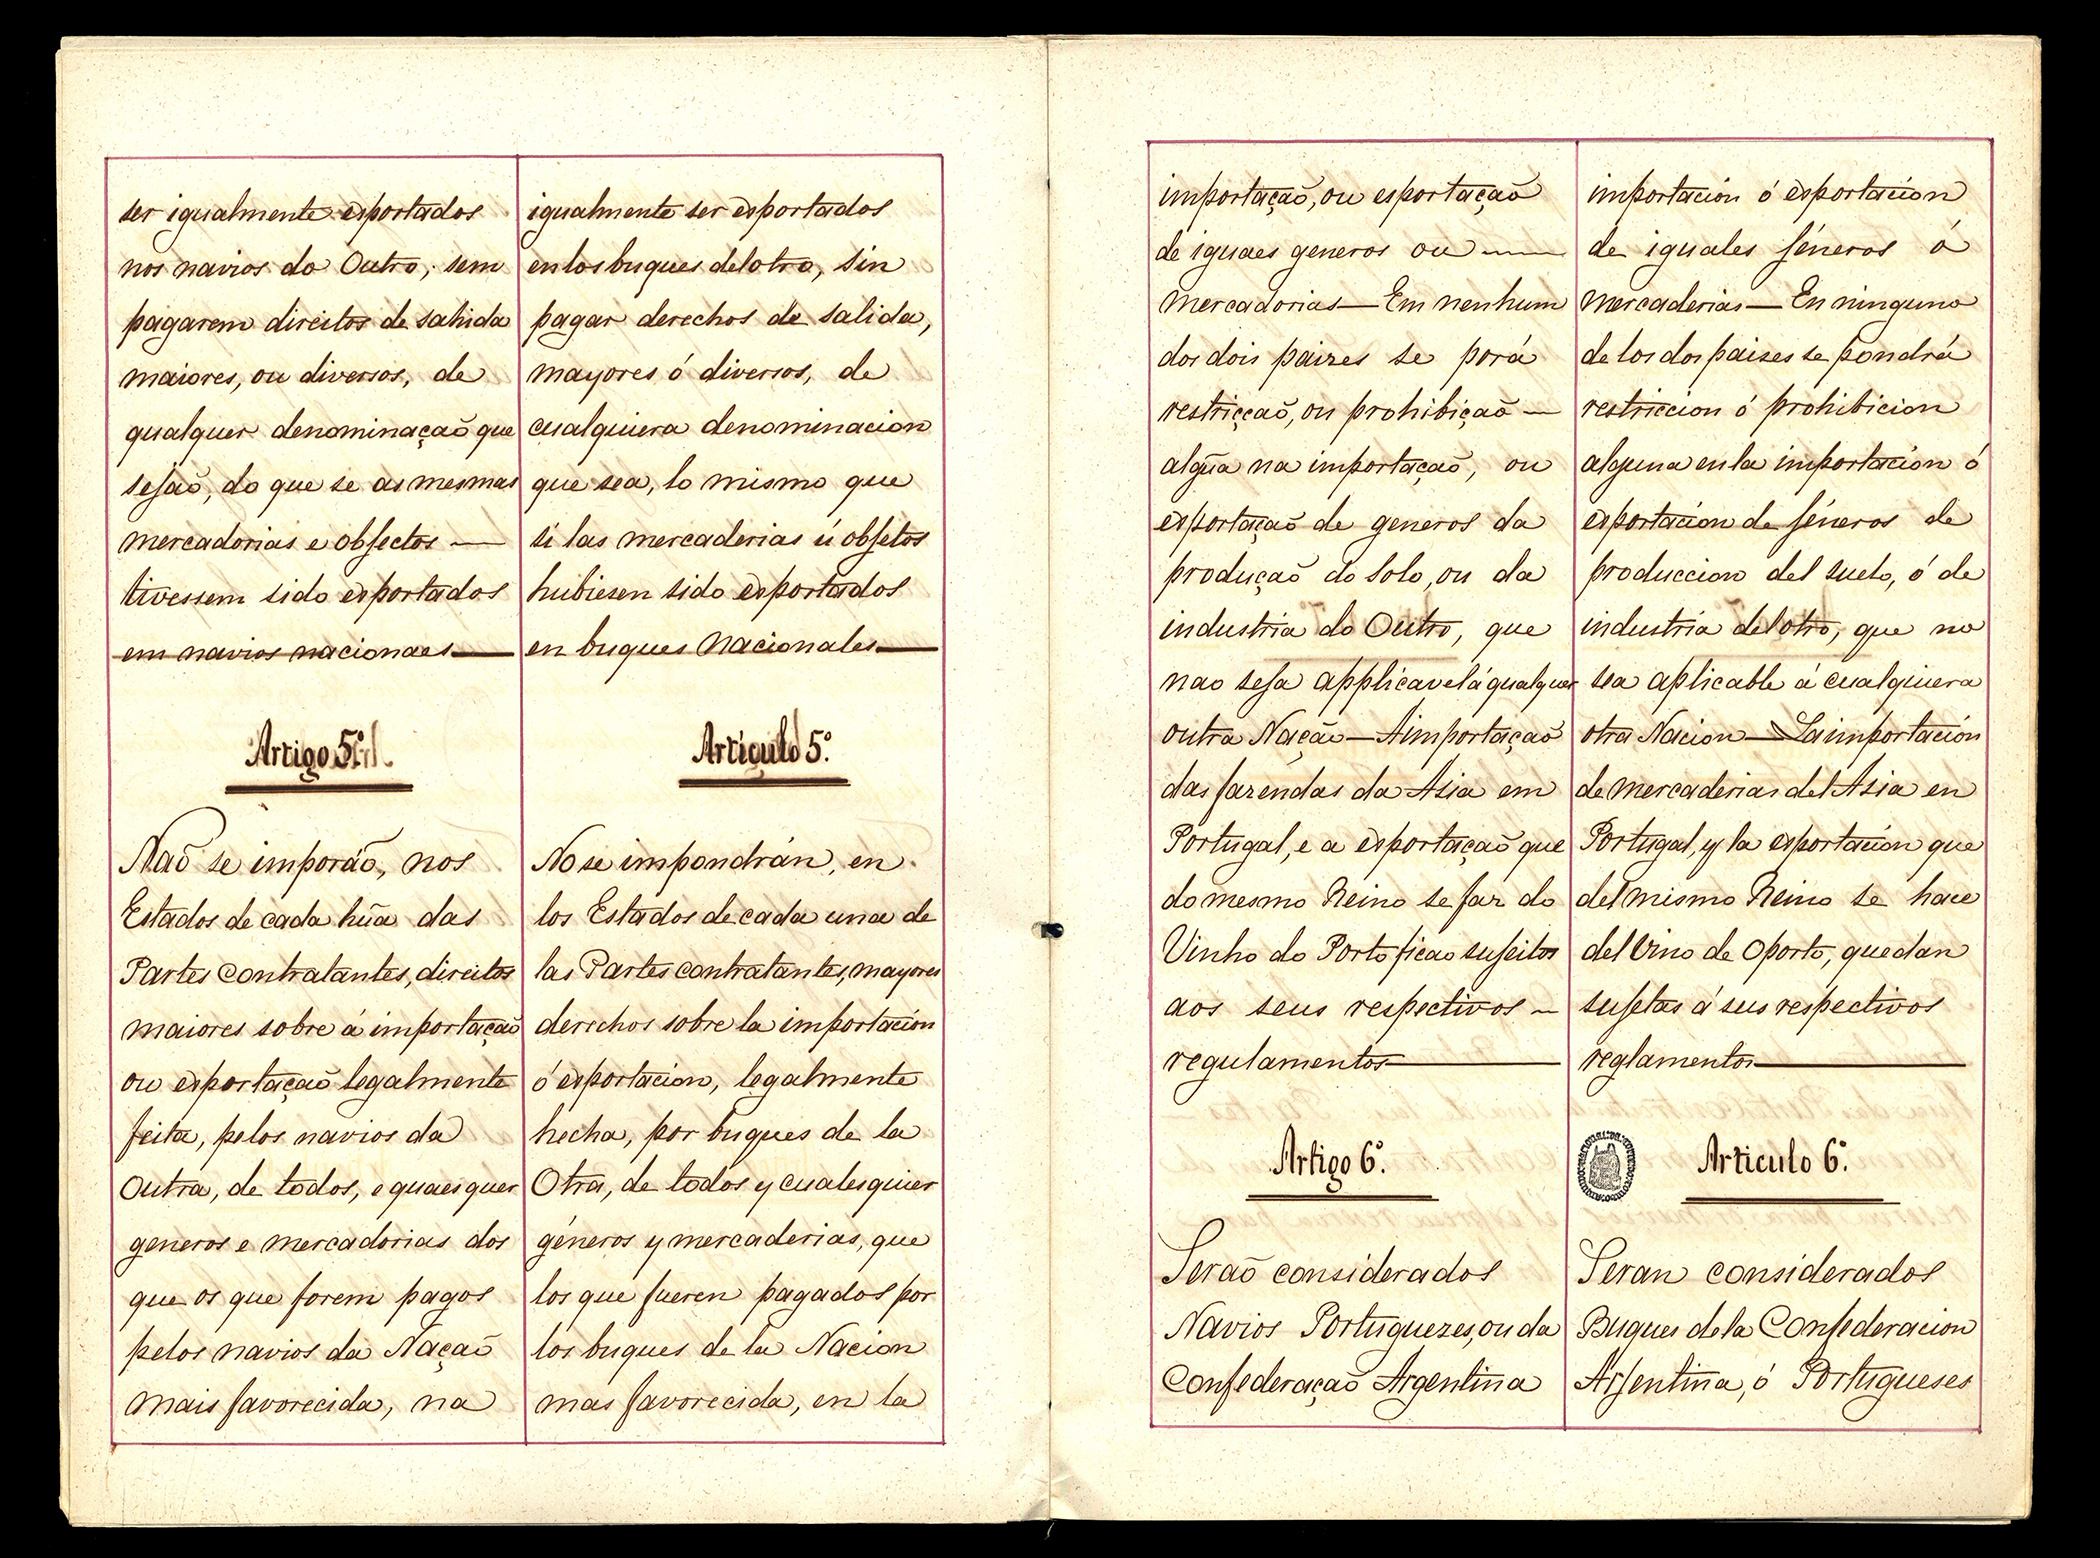 ser igualmente exportados
nos navios do Outro, sem
pagarem direitos de sahida
maiores, ou diversos, de
qualquer denominação que
sejão, do que se as mesmas
mercadorias e objectos —
tivessem sido exportados
em navios nacionaes —
Artigo 5º
Não se imporão, nos
Estados de cada hũa das
Partes Contratantes, direitos
maiores sobre á importação
ou exportação legalmente
feita, pelos navios da
Outra, de todos, e quaesquer
generos e mercadorias dos
que os que forem pagos
pelos navios da Nação
mais favorecida, na
igualmente ser exportados
en los buques del otro, sin
pagar derechos de salida,
mayores ó diversos, de
cualquiera denominacion
que sea, lo mismo que
si las mercaderias ú objetos
hubiesen sido exportados
en buques Nacionales —
Articulo 5.º
No se impondrán, en
los Estados de cada una de
las Partes contratantes, mayores
derechos sobre la importación
ó exportacion, legalmente
hecha, por buques de la
Otra, de todos y cualesquier
géneros y mercaderias, que
los que fueren pagados por
los buques de la Nacion
mas favorecida, en la
importação, ou exportação
de iguaes generos ou —
mercadorias — Em nenhum
dos dois paizes se porá
restricção, ou prohibição —
algũa na importação, ou
exportação de generos da
produção do solo, ou da
industria do Outro, que
nao seja applicavel á qualquer
outra Nação — A importação
das fazendas da Asia em
Portugal, e a exportação que
do mesmo Reino se faz do
Vinho do Porto ficao sujeitos
aos seus respectivos —
regulamentos —
Artigo 6.º
Serão considerados
Navios Portuguezes, ou da
Confederação Argentina
importacion ó exportacion
de iguales jéneros ó
mercaderias — En ninguno
de los dos paises se pondrá
restriccion ó prohibicion
alguna en la importacion ó
exportacion de jéneros de
produccion del suelo, ó de
industria del otro, que no
sea aplicable á cualquiera
otra Nacion — La importación
de mercaderias del Asia en
Portugal, y la exportación que
del mismo Reino se hace
del Vino de Oporto, quedan
sujetas á sus respectivos
reglamentos —
Articulo 6.º
Seran considerados
Buques de la Confederacion
Arjentina, ó Portugueses